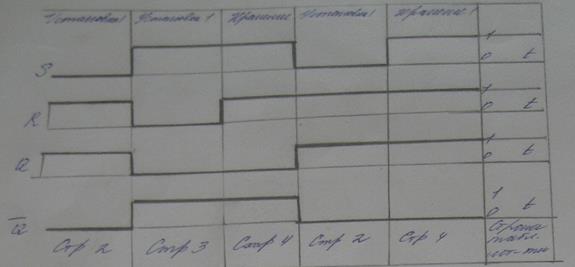 Установка 1 Установка 1 Хранение Установка 1 Хранение 1
S 1
0 t
R 1
0 t
Q 1
0 t
Q̅ 1
0 t
Стр 2 Стр 3 Стр 4 Стр 2 Стр 4 Строка
табл.